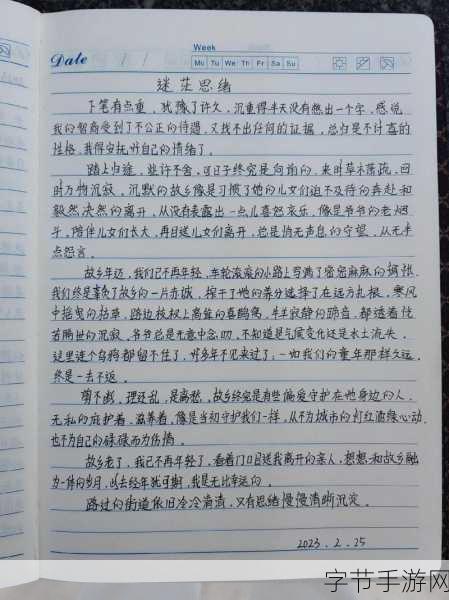 Week
Date / /
Mo Tu We Th Fr Sa Su
迷茫思绪
下笔有点重，犹豫了许久，沉重得半天没有憋出一个字，感觉
我的智商受到了不公正的待遇，又找不出任何的证据，总归是不讨喜的
性格，我得安抚好自己的情绪了。
踏上归途，些许不舍，可日子终究是向前的，来时草木荣疏，回
时万物沉寂，沉默的故乡像是习惯了她的儿女们迫不及待的奔赴和
毅然决然的离开，从没有表露出一点儿喜怒哀乐，像是爷爷的老烟
斗，陪伴儿女们长大，再目送儿女们离开，总是悄无声息的守望，从无半
点怨言。
故乡年迈，我们已不再年轻，车轮滚滚的小路上写满了密密麻麻的惆怅，
我们终是辜负了故乡的一片赤诚，榨干了她的养分选择了在远方扎根，寒风
中摇曳的枯草，路边枝桠上高耸的喜鹊窝，牛羊寂静的蹄音，都透着恍
若隔世的沉寂，爷爷总是无意中念叨，不知道是气候变化还是水土流失，
这里连个乌鸦都留不住了，好多年不见来过了，一如我们的童年那样久远，
终是一去不返。
剪不断，理还乱，是离愁，故乡终究是有些偏爱守护在她身边的人，
无私的庇护着，滋养着，像是当初守护我们一样，从不为城市的灯红酒绿心动，
也不为自己的碌碌而为伤情。
故乡老了，我已不再年轻了，看着门口目送我离开的亲人，想想和故乡融
为一体的岁月，此去经年犹可期，我是无比幸运的。
路过的街道依旧冷冷清清，只有思绪慢慢清晰沉淀。
2023.2.25
字节手游网